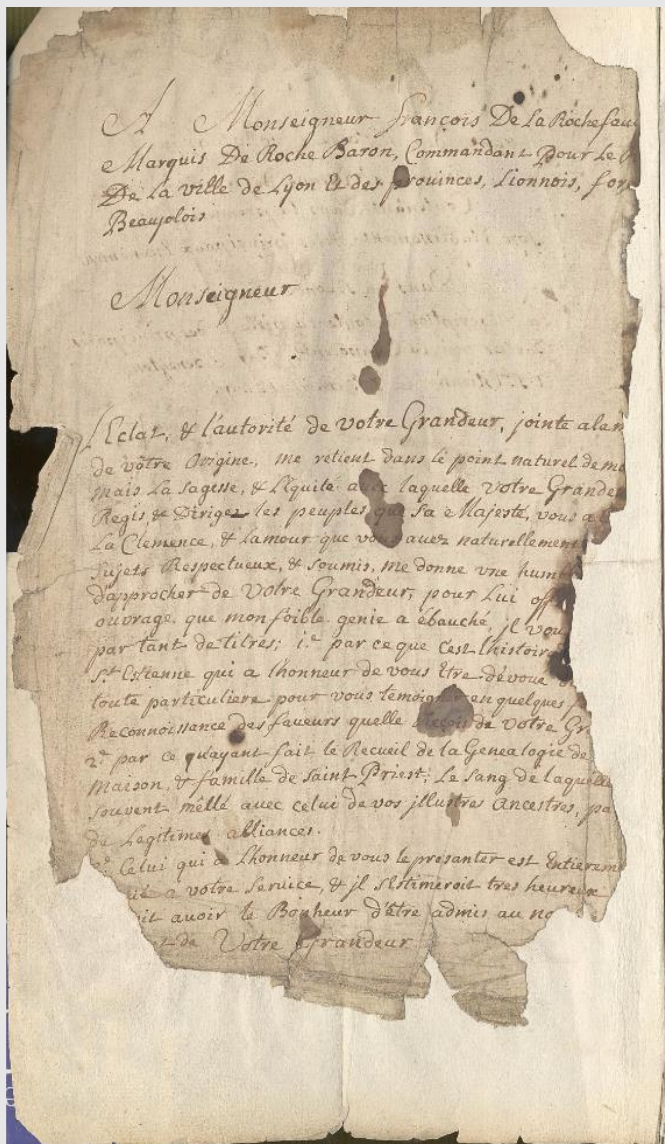 A Monseigneur françois De la Rochefau
Marquis De Roche Baron, Commandant pour Le R
De la ville de Lyon Et des provinces, Lionnois, for
Beaujolois
Monseigneur
L'Eclat, & l'autorité de votre Grandeur, jointe a la n
de votre Origine, me retient dans le point naturel de m
mais La Sagesse, & L'Equité avec laquelle votre Grande
Regis, & Dirigez les peuples que Sa Majesté, vous a
La Clemence, & lamour que vous avez naturellement
Sujets Respectueux, & soumis, me donne vne hum
d'approcher de Votre Grandeur, pour Lui off
ouvrage que mon foible genie a ébauché, jl vou
par tant de titres; 1.º par ce que c'est l'histoire
S.t Estienne qui a lhonneur de vous Etre dévoue
toute particuliere pour vous temoigner en quelques f
Reconnoissance des faveurs quelle Reçois de votre Gr
2.º par ce quayant fait le Recueil de la Genealogie de
Maison, & famille de Saint Priest; Le Sang de laquelle
souvent mêllé avec celui de vos jllustres Ancestres, pa
de Legitimes alliances.
Celui qui a Lhonneur de vous le presanter est Entierem
a votre Service, & jl s'Estimeroit tres heureux
oit avoir le Bonheur d'être admis au no
t de Votre Grandeur